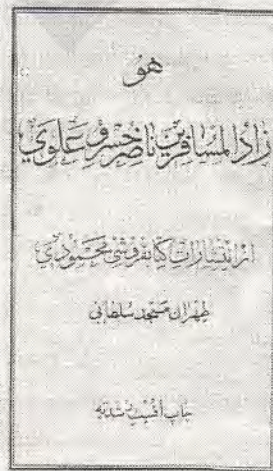 هو
زاد المسافرین ناصر خسرو علوي
از انتشارات کتابفروشی محمودي
طهران مسجد سلطانی
چاپ افست رشدیه